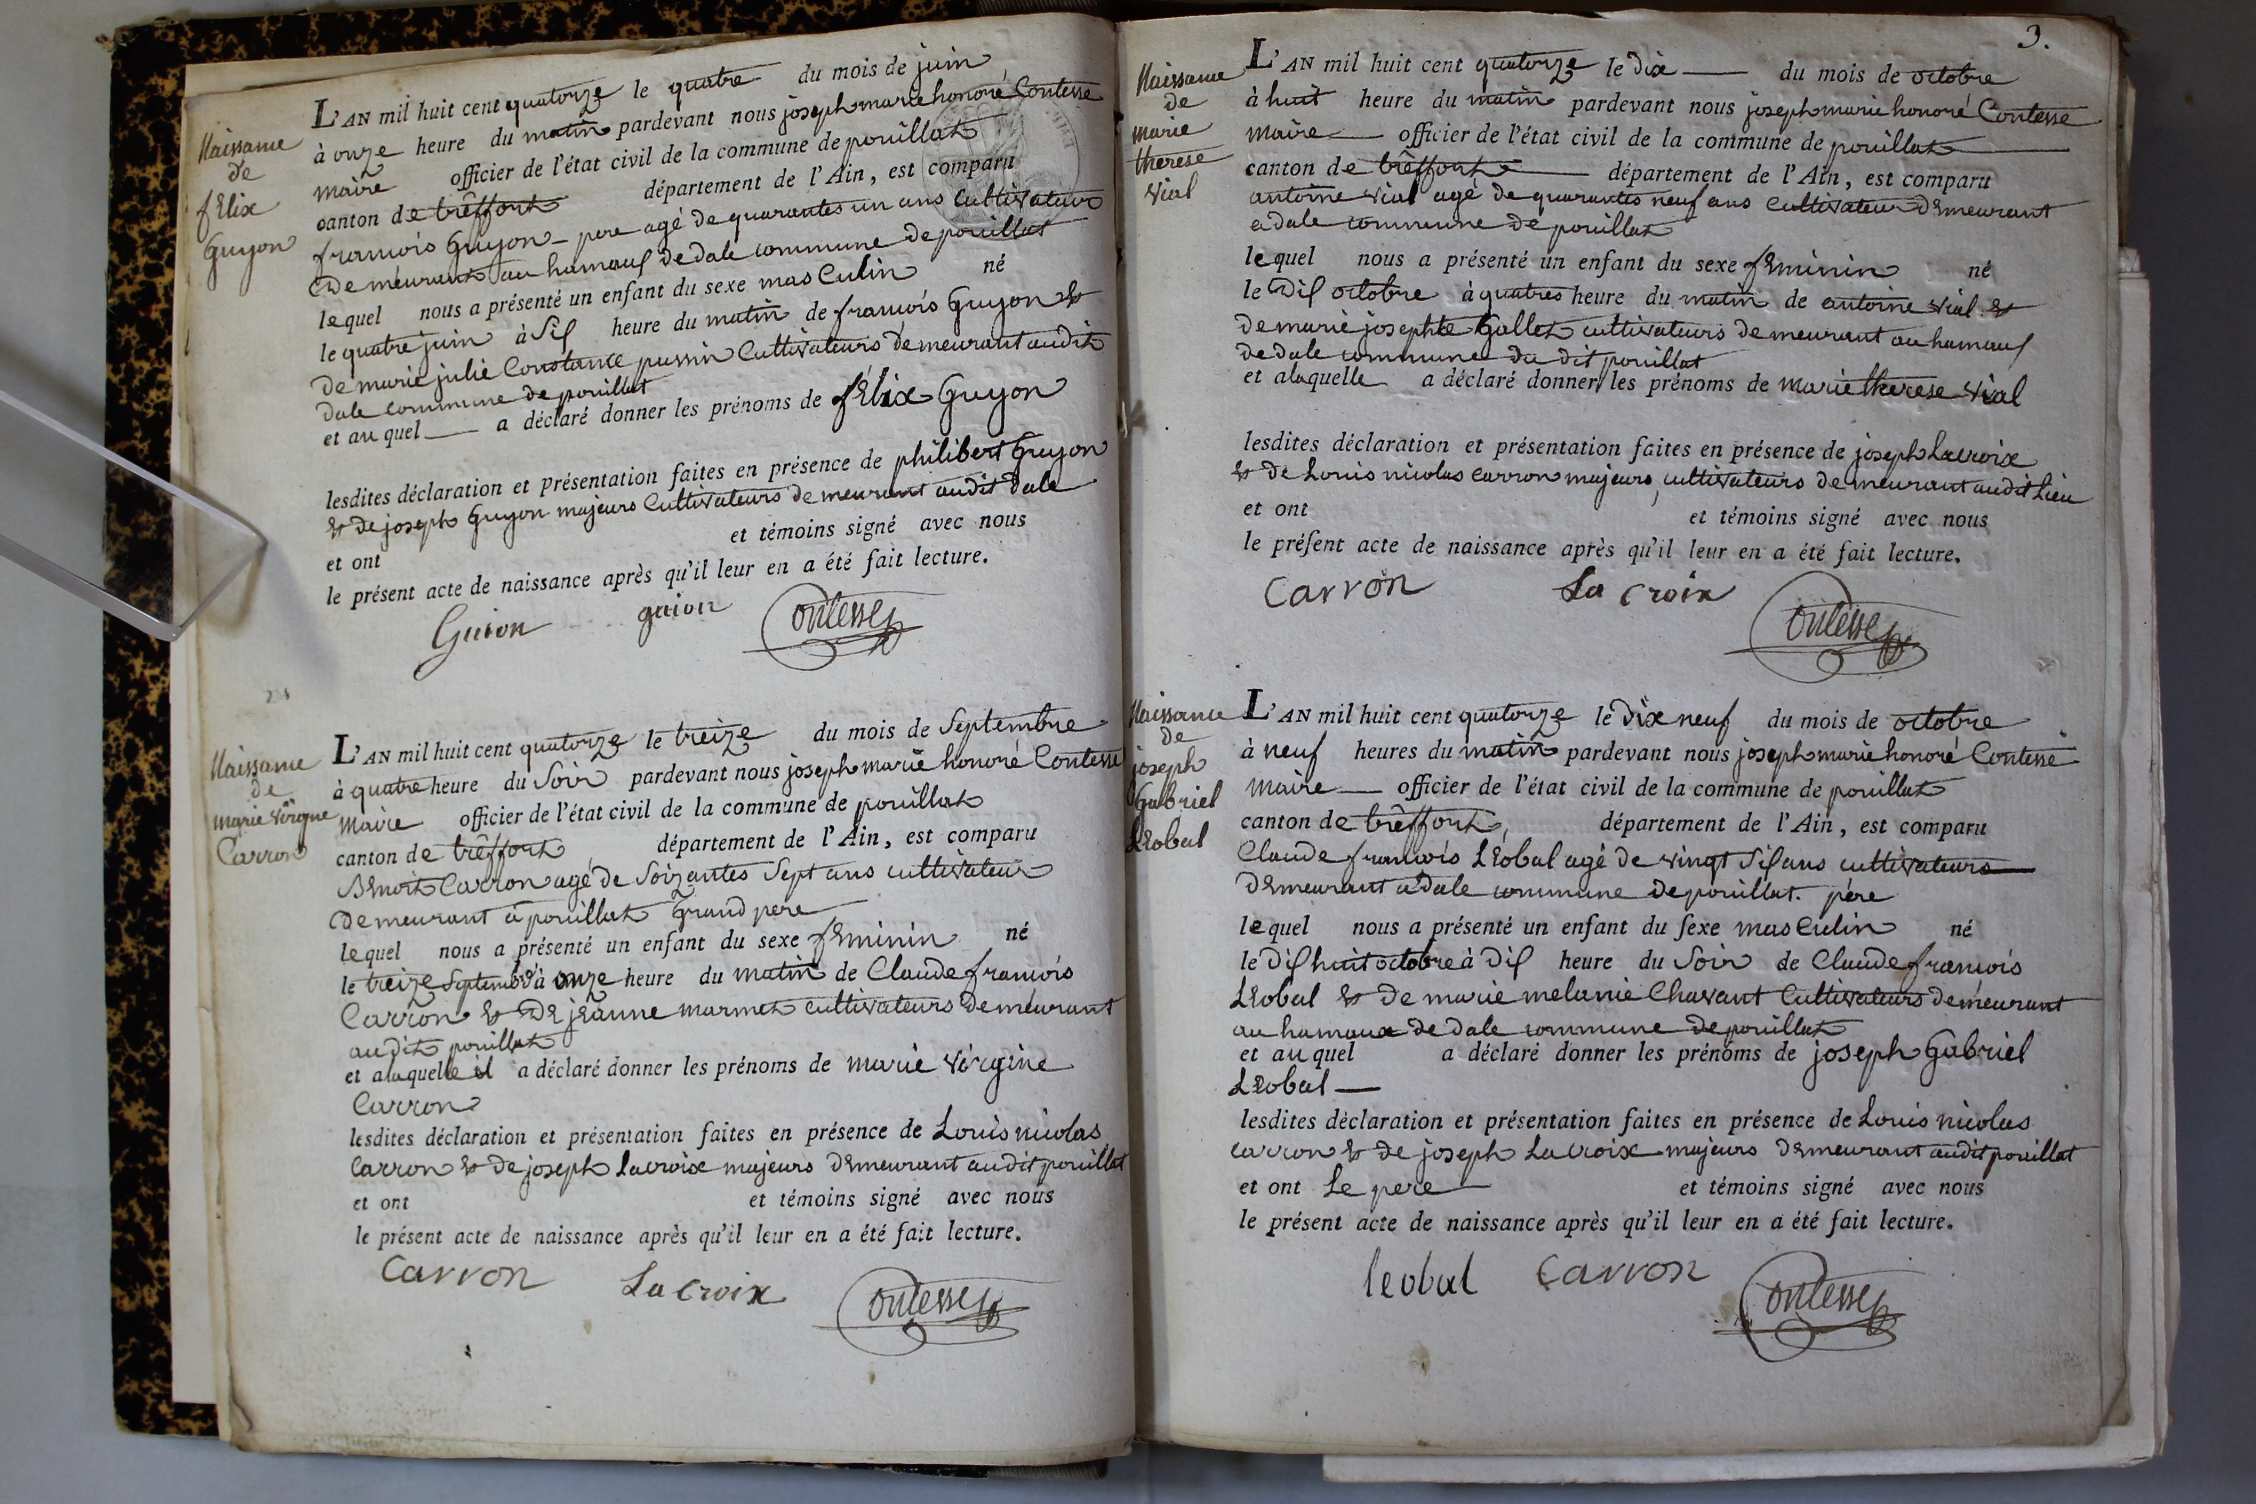 Naissance
de
fElix
Guyon
L'AN mil huit cent quatorze le quatre du mois de juin
à onze heure du matin pardevant nous joseph marie honoré Contesse
maire officier de l'état civil de la commune de pouillat
canton de trêffort département de l'Ain, est comparu
francois Guyon pere agé de quarantes un ans Cultivateur
demeurant au hamaux de dale commune de pouillat
lequel nous a présenté un enfant du sexe masculin né
le quatre juin à Six heure du matin de francois Guyon &
de marie julie Constance pussin Cultivateurs demeurant audit
dale commune de pouillat
et auquel a déclaré donner les prénoms de fÉlix Guyon
lesdites déclaration et présentation faites en présence de philibert Guyon
& de joseph Guyon majeurs Cultivateurs demeurant audit dale
et ont et témoins signé avec nous
le présent acte de naissance après qu'il leur en a été fait lecture.
Guion guion Contesse
Naissance
de
marie virgine
Carron
L'AN mil huit cent quatorze le treize du mois de Septembre
à quatre heure du Soir pardevant nous joseph marie honoré Contesse
maire officier de l'état civil de la commune de pouillat
canton de trêffort département de l'Ain, est comparu
BEnoit Carron agé de Soixantes Sept ans cultivateur
demeurant a pouillat Grand pere
lequel nous a présenté un enfant du sexe fEminin né
le treize Septembre à onze heure du matin de Claude francois
Carron & DE jeanne marmet cultivateurs demeurant
audit pouillat
et alaquelle il a déclaré donner les prénoms de marie virgine
Carron
lesdites déclaration et présentation faites en présence de Louis nicolas
Carron & de joseph Lacroix majeurs DEmeurant audit pouillat
et ont et témoins signé avec nous
le présent acte de naissance après qu'il leur en a été fait lecture.
Carron La croix Contesse
3.
Naissance
de
marie
therese
vial
L'AN mil huit cent quatorze le dix du mois de octobre
à huit heure du matin pardevant nous joseph marie honoré Contesse
maire officier de l'état civil de la commune de pouillat
canton de trêffort département de l'Ain, est comparu
antoine vial agé de quarantes neuf ans cultivateur DEmeurant
a dale commune de pouillat
lequel nous a présenté un enfant du sexe fEminin né
le Dix octobre à quatres heure du matin de antoine vial &
de marie josephte Gallet cultivateurs demeurant au hamaux
de dale commune du dit pouillat
et alaquelle a déclaré donner les prénoms de marie therese vial
lesdites déclaration et présentation faites en présence de joseph Lacroix
& de Louis nicolas carron majeurs, cultivateurs demeurant audit Lieu
et ont et témoins signé avec nous
le présent acte de naissance après qu'il leur en a été fait lecture.
Carron La croix Contesse
Naissance
de
joseph
Gabriel
LEobal
L'AN mil huit cent quatorze le Dix neuf du mois de octobre
à neuf heures du matin pardevant nous joseph marie honoré Contesse
maire officier de l'état civil de la commune de pouillat
canton de trêffort, département de l'Ain, est comparu
Claude francois LEobal agé de vingt Six ans cultivateurs
DEmeurant a dale commune de pouillat. pére
lequel nous a présenté un enfant du sexe masculin né
le Dix huit octobre à Dix heure du Soir de Claude francois
LEobal & de marie melanie Chavant Cultivateurs demeurant
au hamaux de dale commune de pouillat
et auquel a déclaré donner les prénoms de joseph Gabriel
LEobal
lesdites déclaration et présentation faites en présence de Louis nicolas
carron & de joseph Lacroix majeurs DEmeurant audit pouillat
et ont Le pere et témoins signé avec nous
le présent acte de naissance après qu'il leur en a été fait lecture.
leobal Carron Contesse